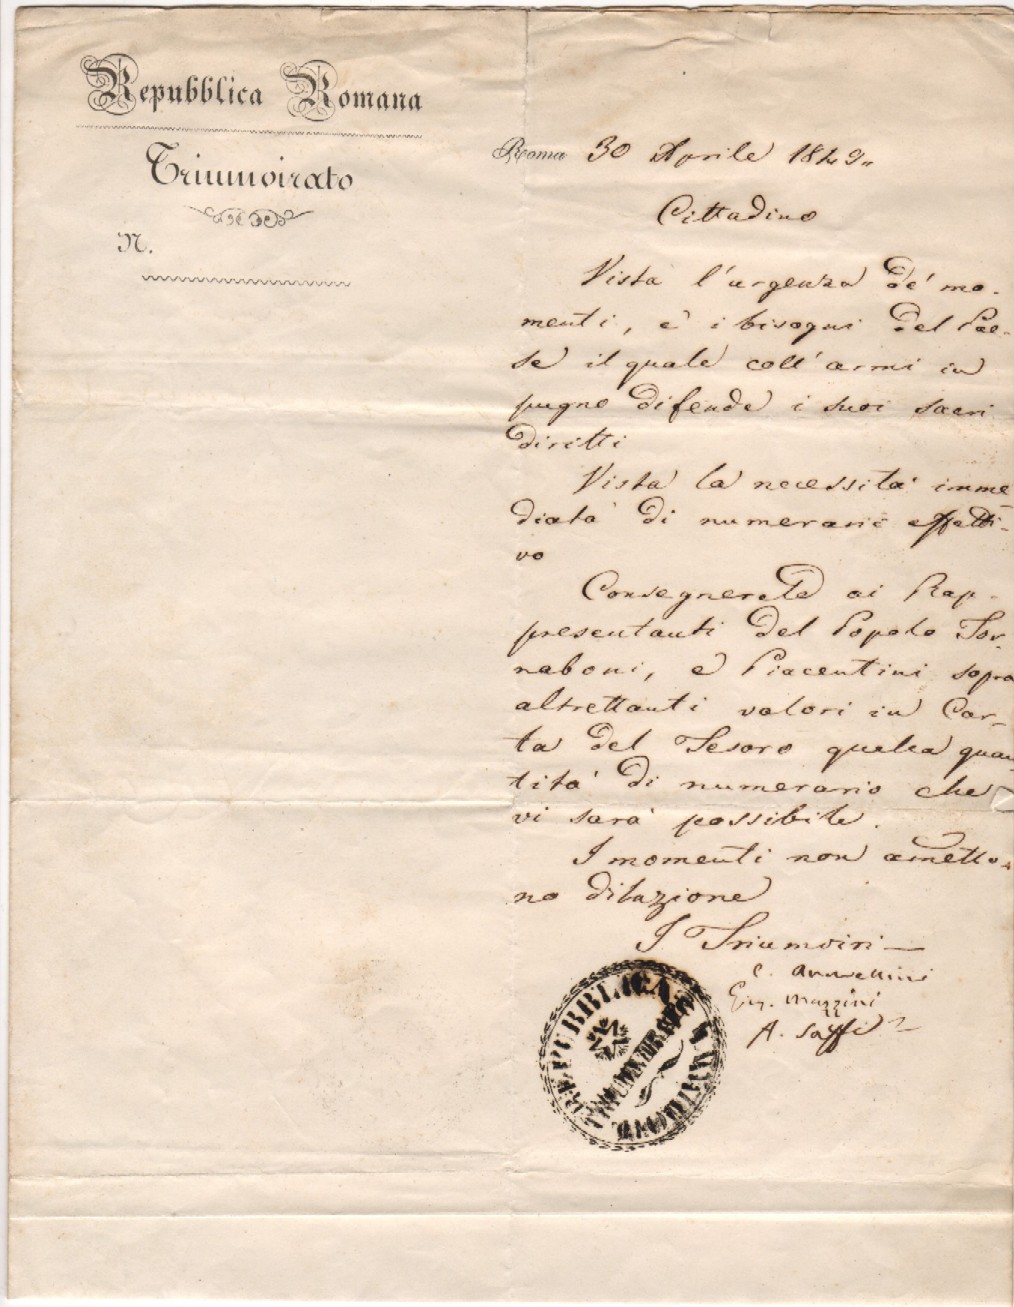 Repubblica Romana
Triumvirato
N.
Roma 30 Aprile 1849
Cittadino
Vista l'urgenza de' mo-
menti, e i bisogni del Pae-
se il quale coll'armi in
pugno difende i suoi sacri
diritti
Vista la necessità imme-
diata di numerario effetti-
vo
Consegnerete ai Rap-
presentanti del Popolo Tor-
naboni, e Piacentini sopra
altrettanti valori in Car-
ta del Tesoro quella quan-
tità di numerario che
vi sarà possibile.
I momenti non ametto-
no dilazione
I Triumviri
C. Armellini
Gius. Mazzini
A. Saffi
REPUBBLICA ROMANA
TRIUMVIRATO